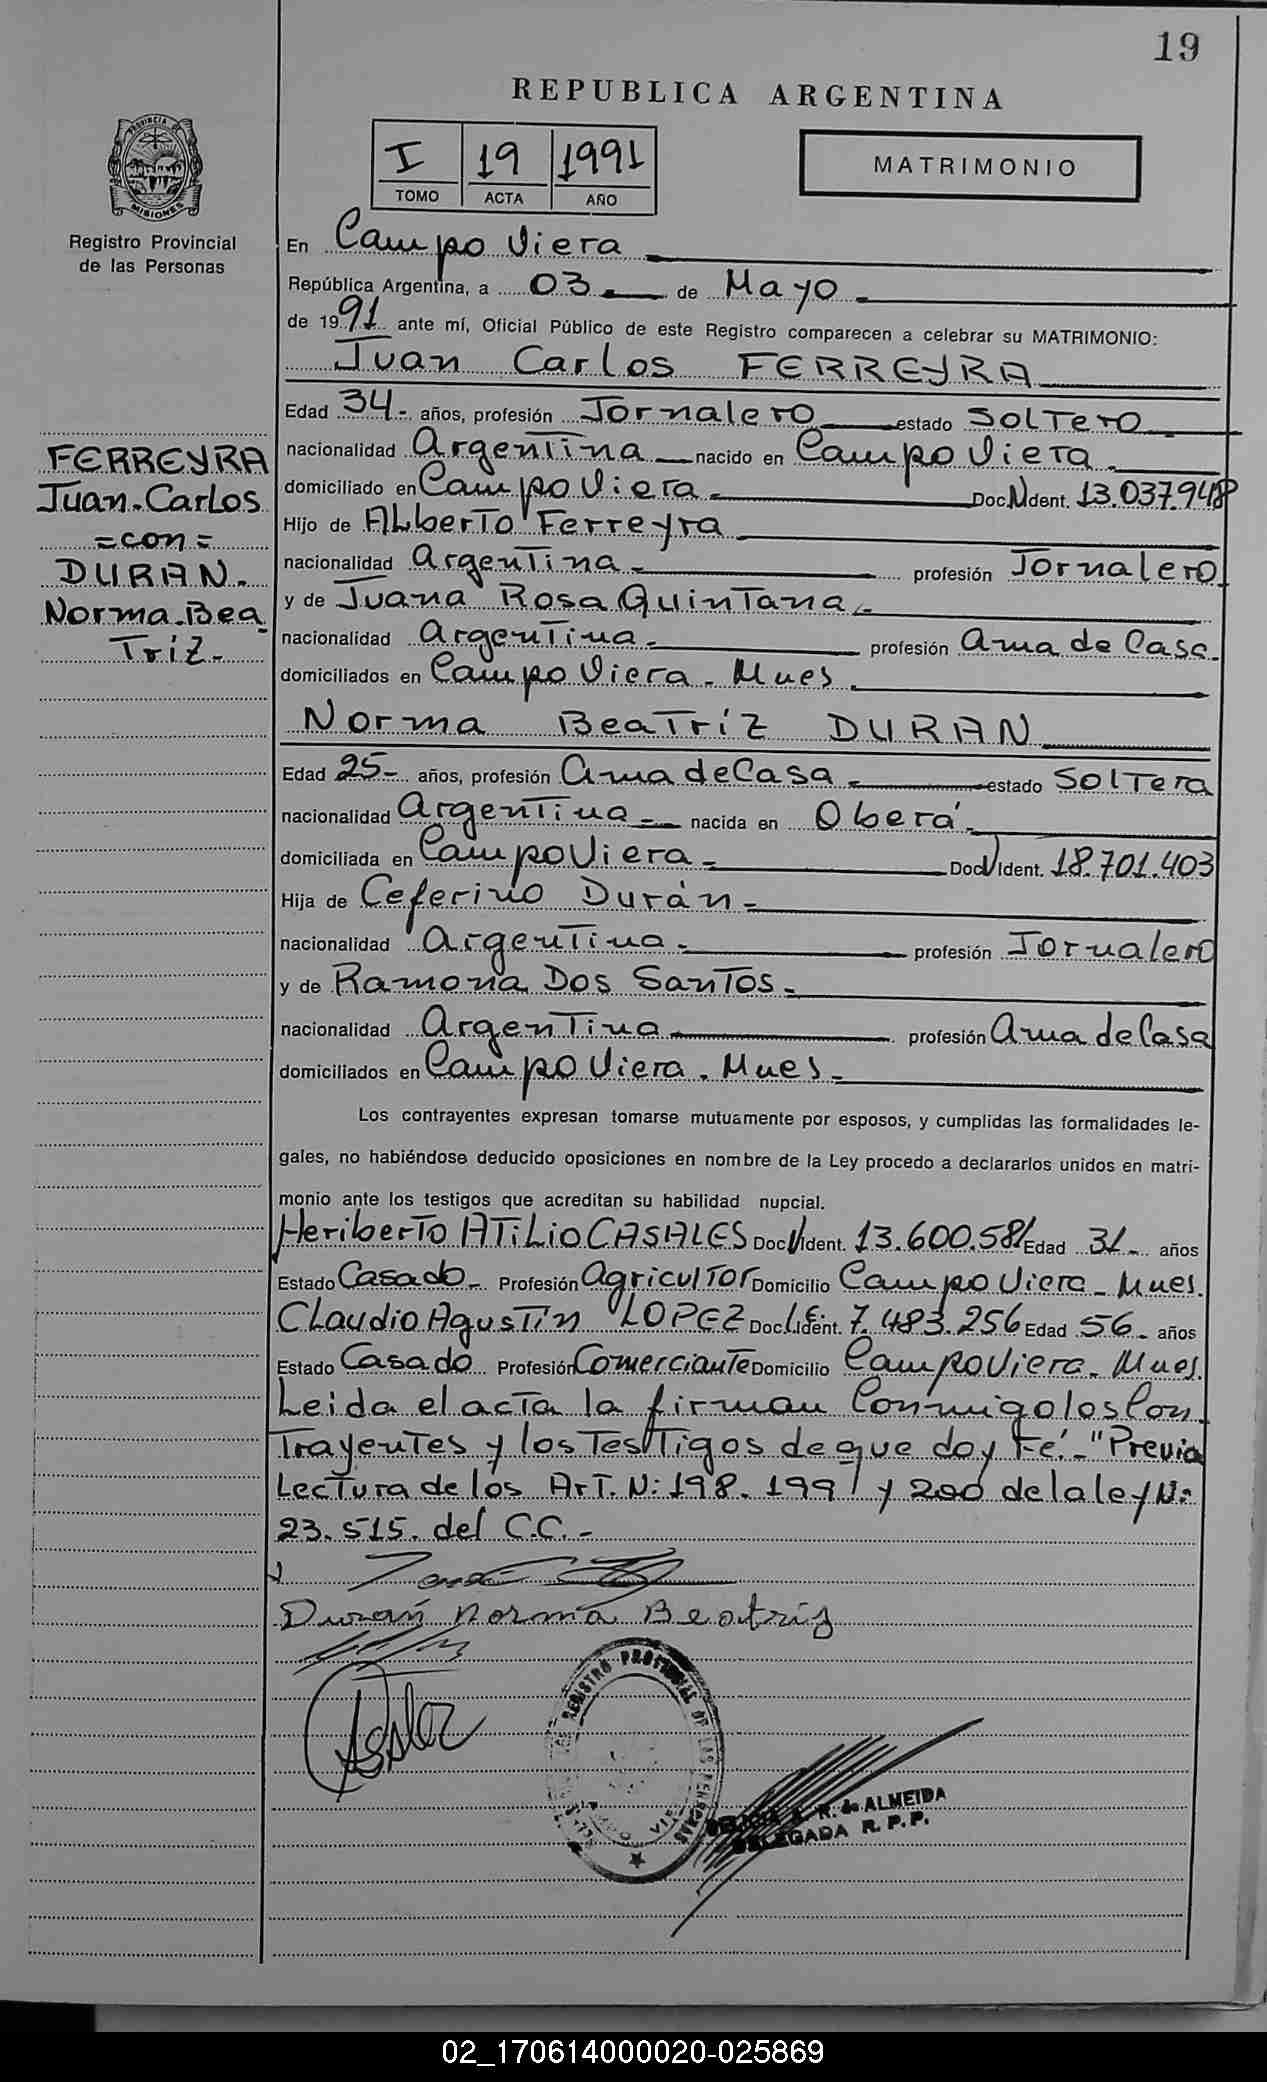 19
REPUBLICA ARGENTINA
PROVINCIA DE
MISIONES
Registro Provincial
de las Personas
I 19 1991
TOMO ACTA AÑO
MATRIMONIO
En Campo Viera
República Argentina, a 03 de Mayo
de 1991 ante mí, Oficial Público de este Registro comparecen a celebrar su MATRIMONIO:
Juan Carlos FERREYRA
Edad 34- años, profesión Jornalero estado SOLTERO
nacionalidad Argentina nacido en Campo Viera
domiciliado en Campo Viera Doc. N. Ident. 13.037.948
Hijo de Alberto Ferreyra
nacionalidad Argentina profesión Jornalero
y de Juana Rosa Quintana
nacionalidad Argentina profesión Ama de Casa
domiciliados en Campo Viera - Mnes
Norma Beatríz DURAN
Edad 25- años, profesión Ama de Casa estado SOLTERA
nacionalidad Argentina nacida en Oberá
domiciliada en Campo Viera Doc. N Ident. 18.701.403
Hija de Ceferino Durán
nacionalidad Argentina profesión Jornalero
y de Ramona Dos Santos
nacionalidad Argentina profesión Ama de Casa
domiciliados en Campo Viera. Mnes
FERREYRA
Juan-Carlos
=con=
DURAN.
Norma.Bea
Tríz-
Los contrayentes expresan tomarse mutuamente por esposos, y cumplidas las formalidades le-
gales, no habiéndose deducido oposiciones en nombre de la Ley procedo a declararlos unidos en matri-
monio ante los testigos que acreditan su habilidad nupcial.
Heriberto ATILIO CASALES Doc. N Ident. 13.600.581 Edad 31- años
Estado Casado Profesión Agricultor Domicilio Campo Viera - Mnes.
Claudio Agustín LOPEZ Doc. L.E. Ident. 7.483.256 Edad 56- años
Estado Casado Profesión Comerciante Domicilio Campo Viera. Mnes.
Leida el acta la firman Conmigo los Con
Trayentes y los Testigos de que doy Fé.- "Previa
Lectura de los Art. N: 198. 199 y 200 de la ley N:
23.515. del C.C.-
Durán Norma Beatriz
REGISTRO PROVINCIAL DE LAS PERSONAS
R. de ALMEIDA
DELEGADA R. P. P.
02_170614000020-025869